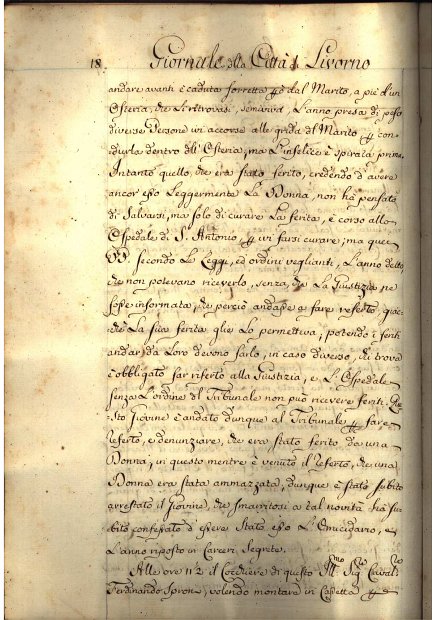 18. Giornale della Città di Livorno
andare avanti è caduta sorretta però dal Marito, a piè d'un
Osteria, che li ritrovasi, semiviva, L'anno presa di peso
diverse Persone ivi accorse alle grida del Marito per con-
durla dentro all'Osteria, ma L'infelice è spirata prima,
Intanto quello, che era stato ferito, credendo d'avere
ancor'esso Leggermente La Donna, non ha pensato
di Salvarsi, ma solo di curare La ferita, è corso allo
Spedale di S. Antonio per ivi farsi curare; ma quei
PP. secondo Le Leggi, ed ordini veglianti, L'anno detto,
che non potevano riceverlo, senza, che La Giustizia ne
fosse informata, che perciò andasse a fare referto, giac-
chè La sua ferita glie Lo permetteva; potendo i feriti
andar da Loro devono farlo, in caso diverso, chi trova
è obbligato far riferto alla Giustizia, e L'Ospedale
senza L'ordine del Tribunale non può ricevere feriti. Que-
sto Giovine è andato dunque al Tribunale per fare
referto, e denunziare, che era stato ferito da una
Donna, in questo mentre è venuto il referto, che una
Donna era stata ammazzata, dunque è stato subito
arrestato il Giovine, che smarritosi a tal novità ha su-
bito confessato d'essere Stato esso L'Omicidario, e
L'anno riposto in Carceri Segrete.
Alle ore 11½ il Cocchiere di questo Ill.mo Sig.re Caval.re
Ferdinando Sproni, volendo montare in Cassetta per